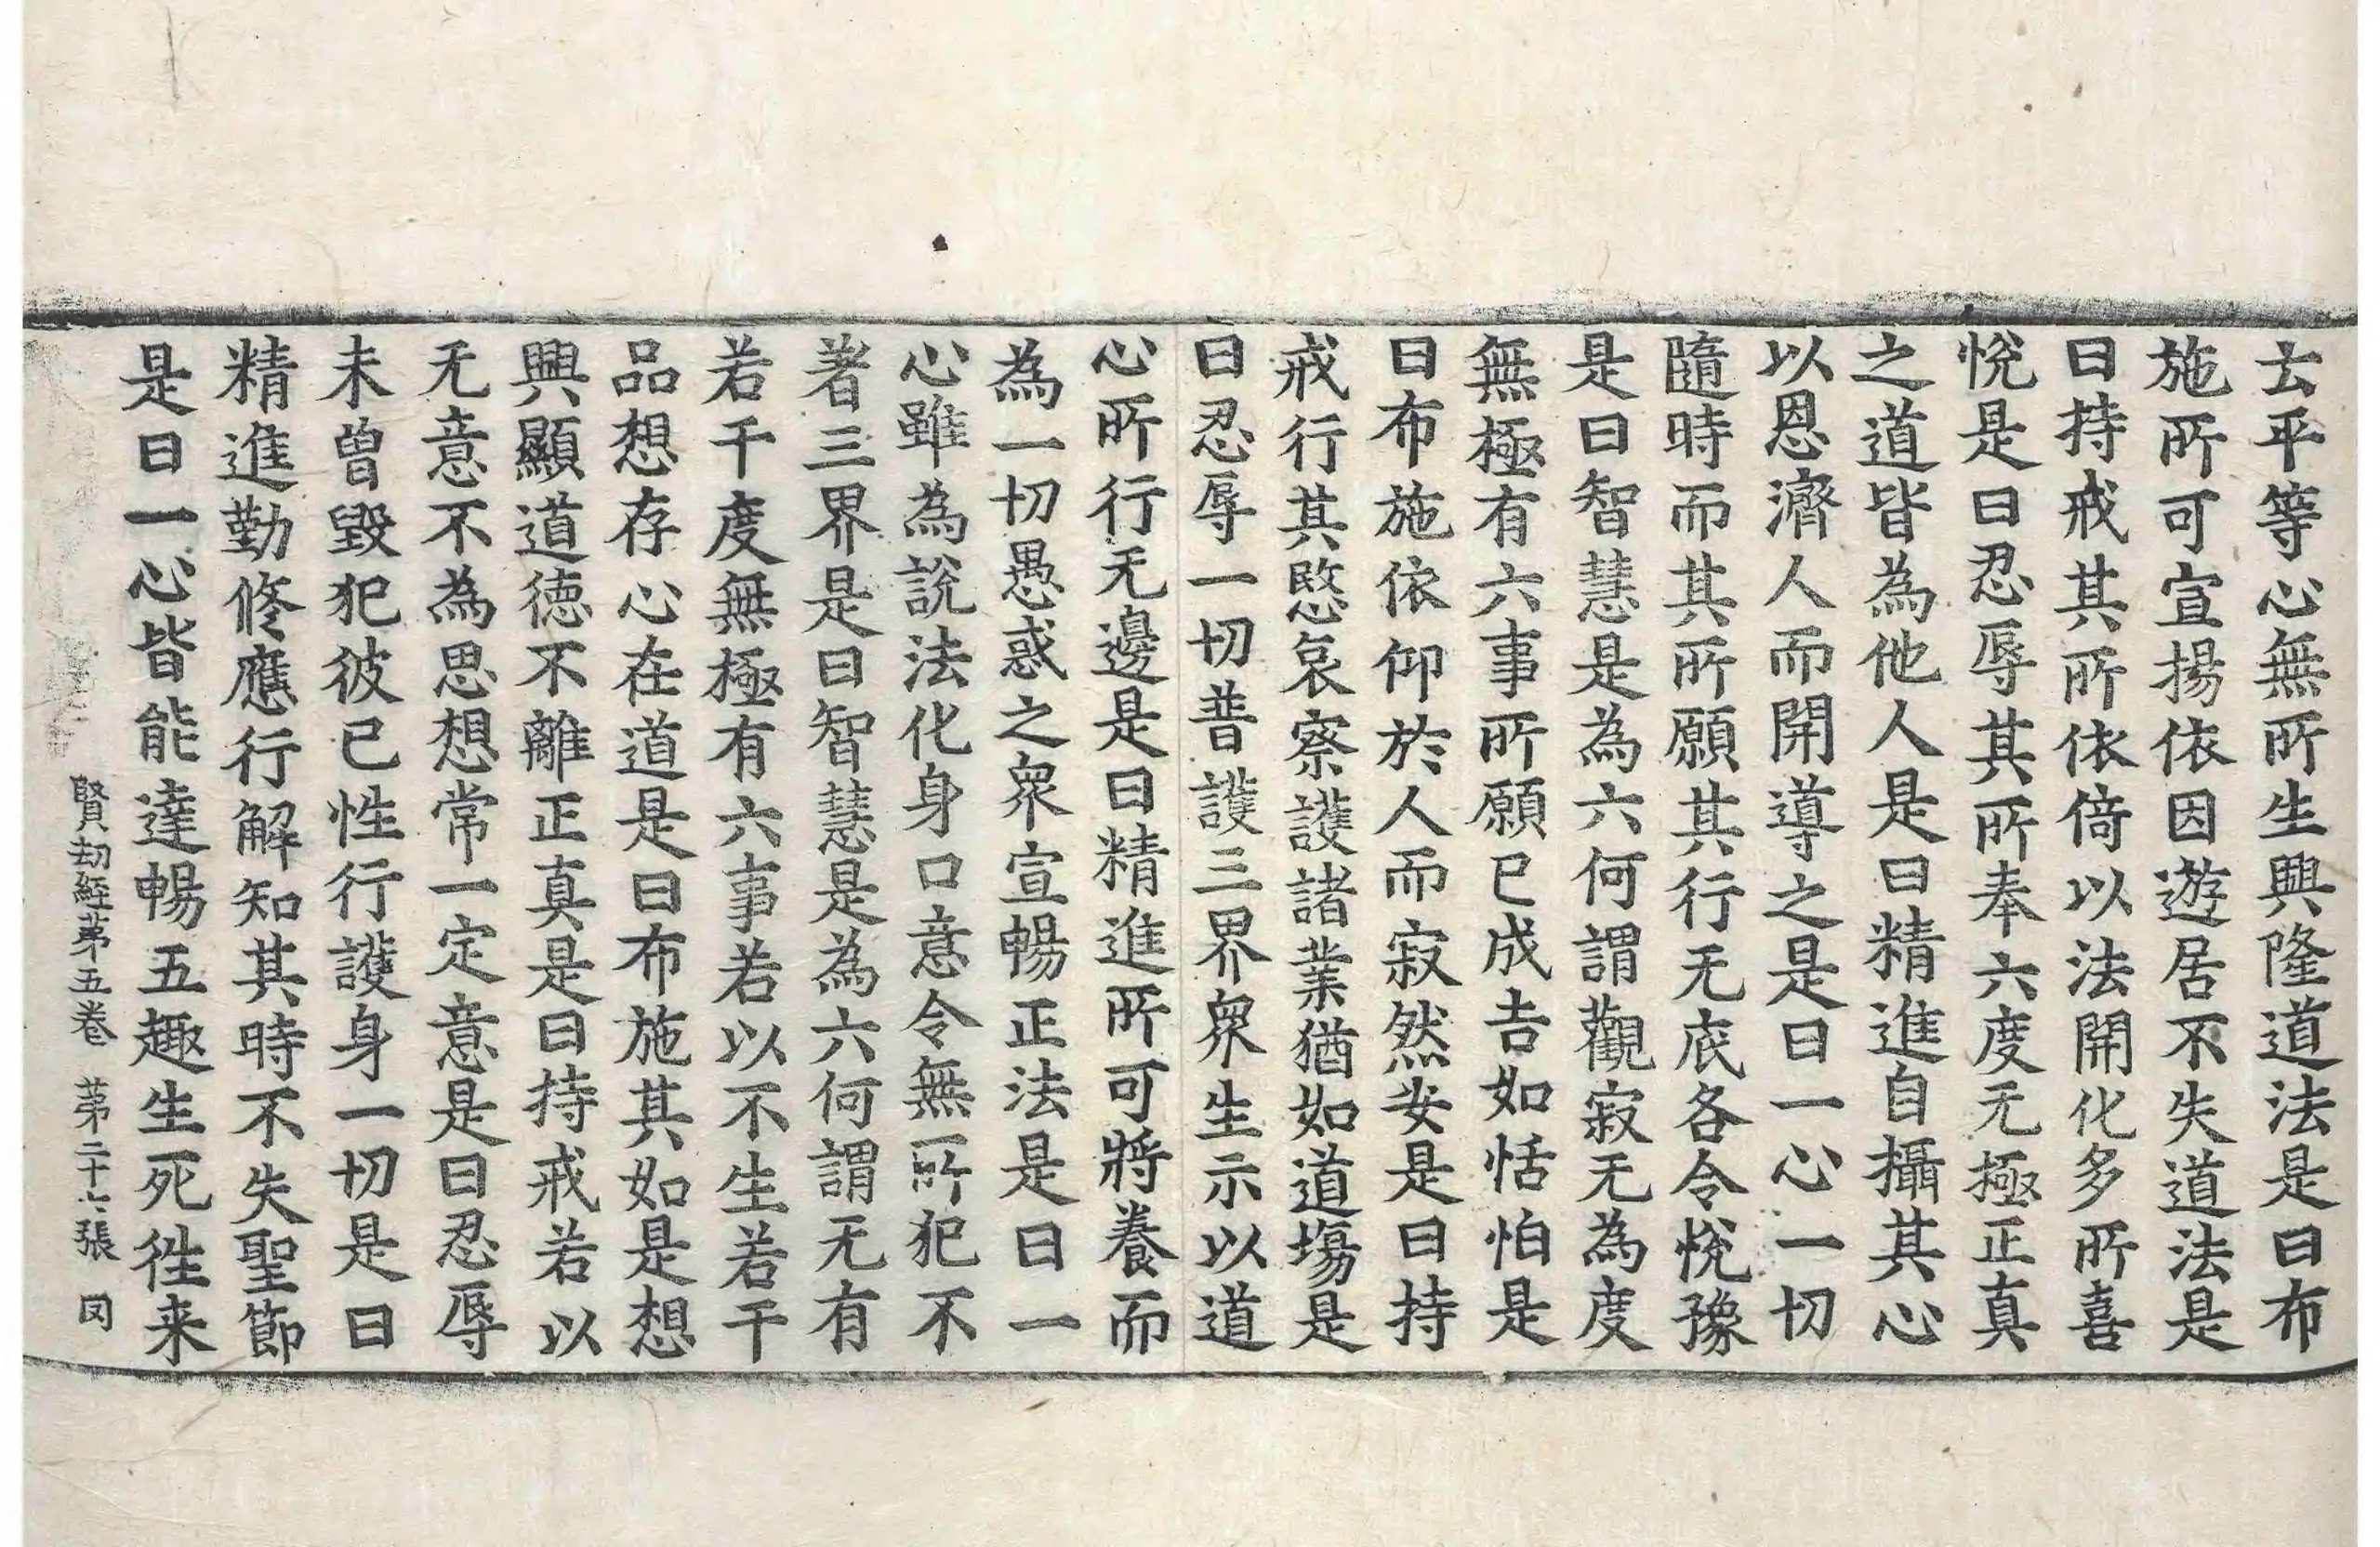 去平等心無所生興隆道法是曰布
施所可宣揚依因遊居不失道法是
曰持戒其所依倚以法開化多所喜
悅是曰忍辱其所奉六度无極正真
之道皆為他人是曰精進自攝其心
以恩濟人而開導之是曰一心一切
隨時而其所願其行无底各令悅豫
是曰智慧是為六何謂觀寂无為度
無極有六事所願已成吉如恬怕是
曰布施依仰於人而寂然安是曰持
戒行其愍哀察護諸業猶如道場是
曰忍辱一切普護三界衆生示以道
心所行无邊是曰精進所可將養而
為一切愚惑之衆宣暢正法是曰一
心雖為說法化身口意令無所犯不
著三界是曰智慧是為六何謂无有
若干度無極有六事若以不生若干
品想存心在道是曰布施其如是想
興顯道德不離正真是曰持戒若以
无意不為思想常一定意是曰忍辱
未曾毀犯彼已性行護身一切是曰
精進勤修應行解知其時不失聖節
是曰一心皆能達暢五趣生死徃来
賢劫經苐五卷 苐二十六張 㓁